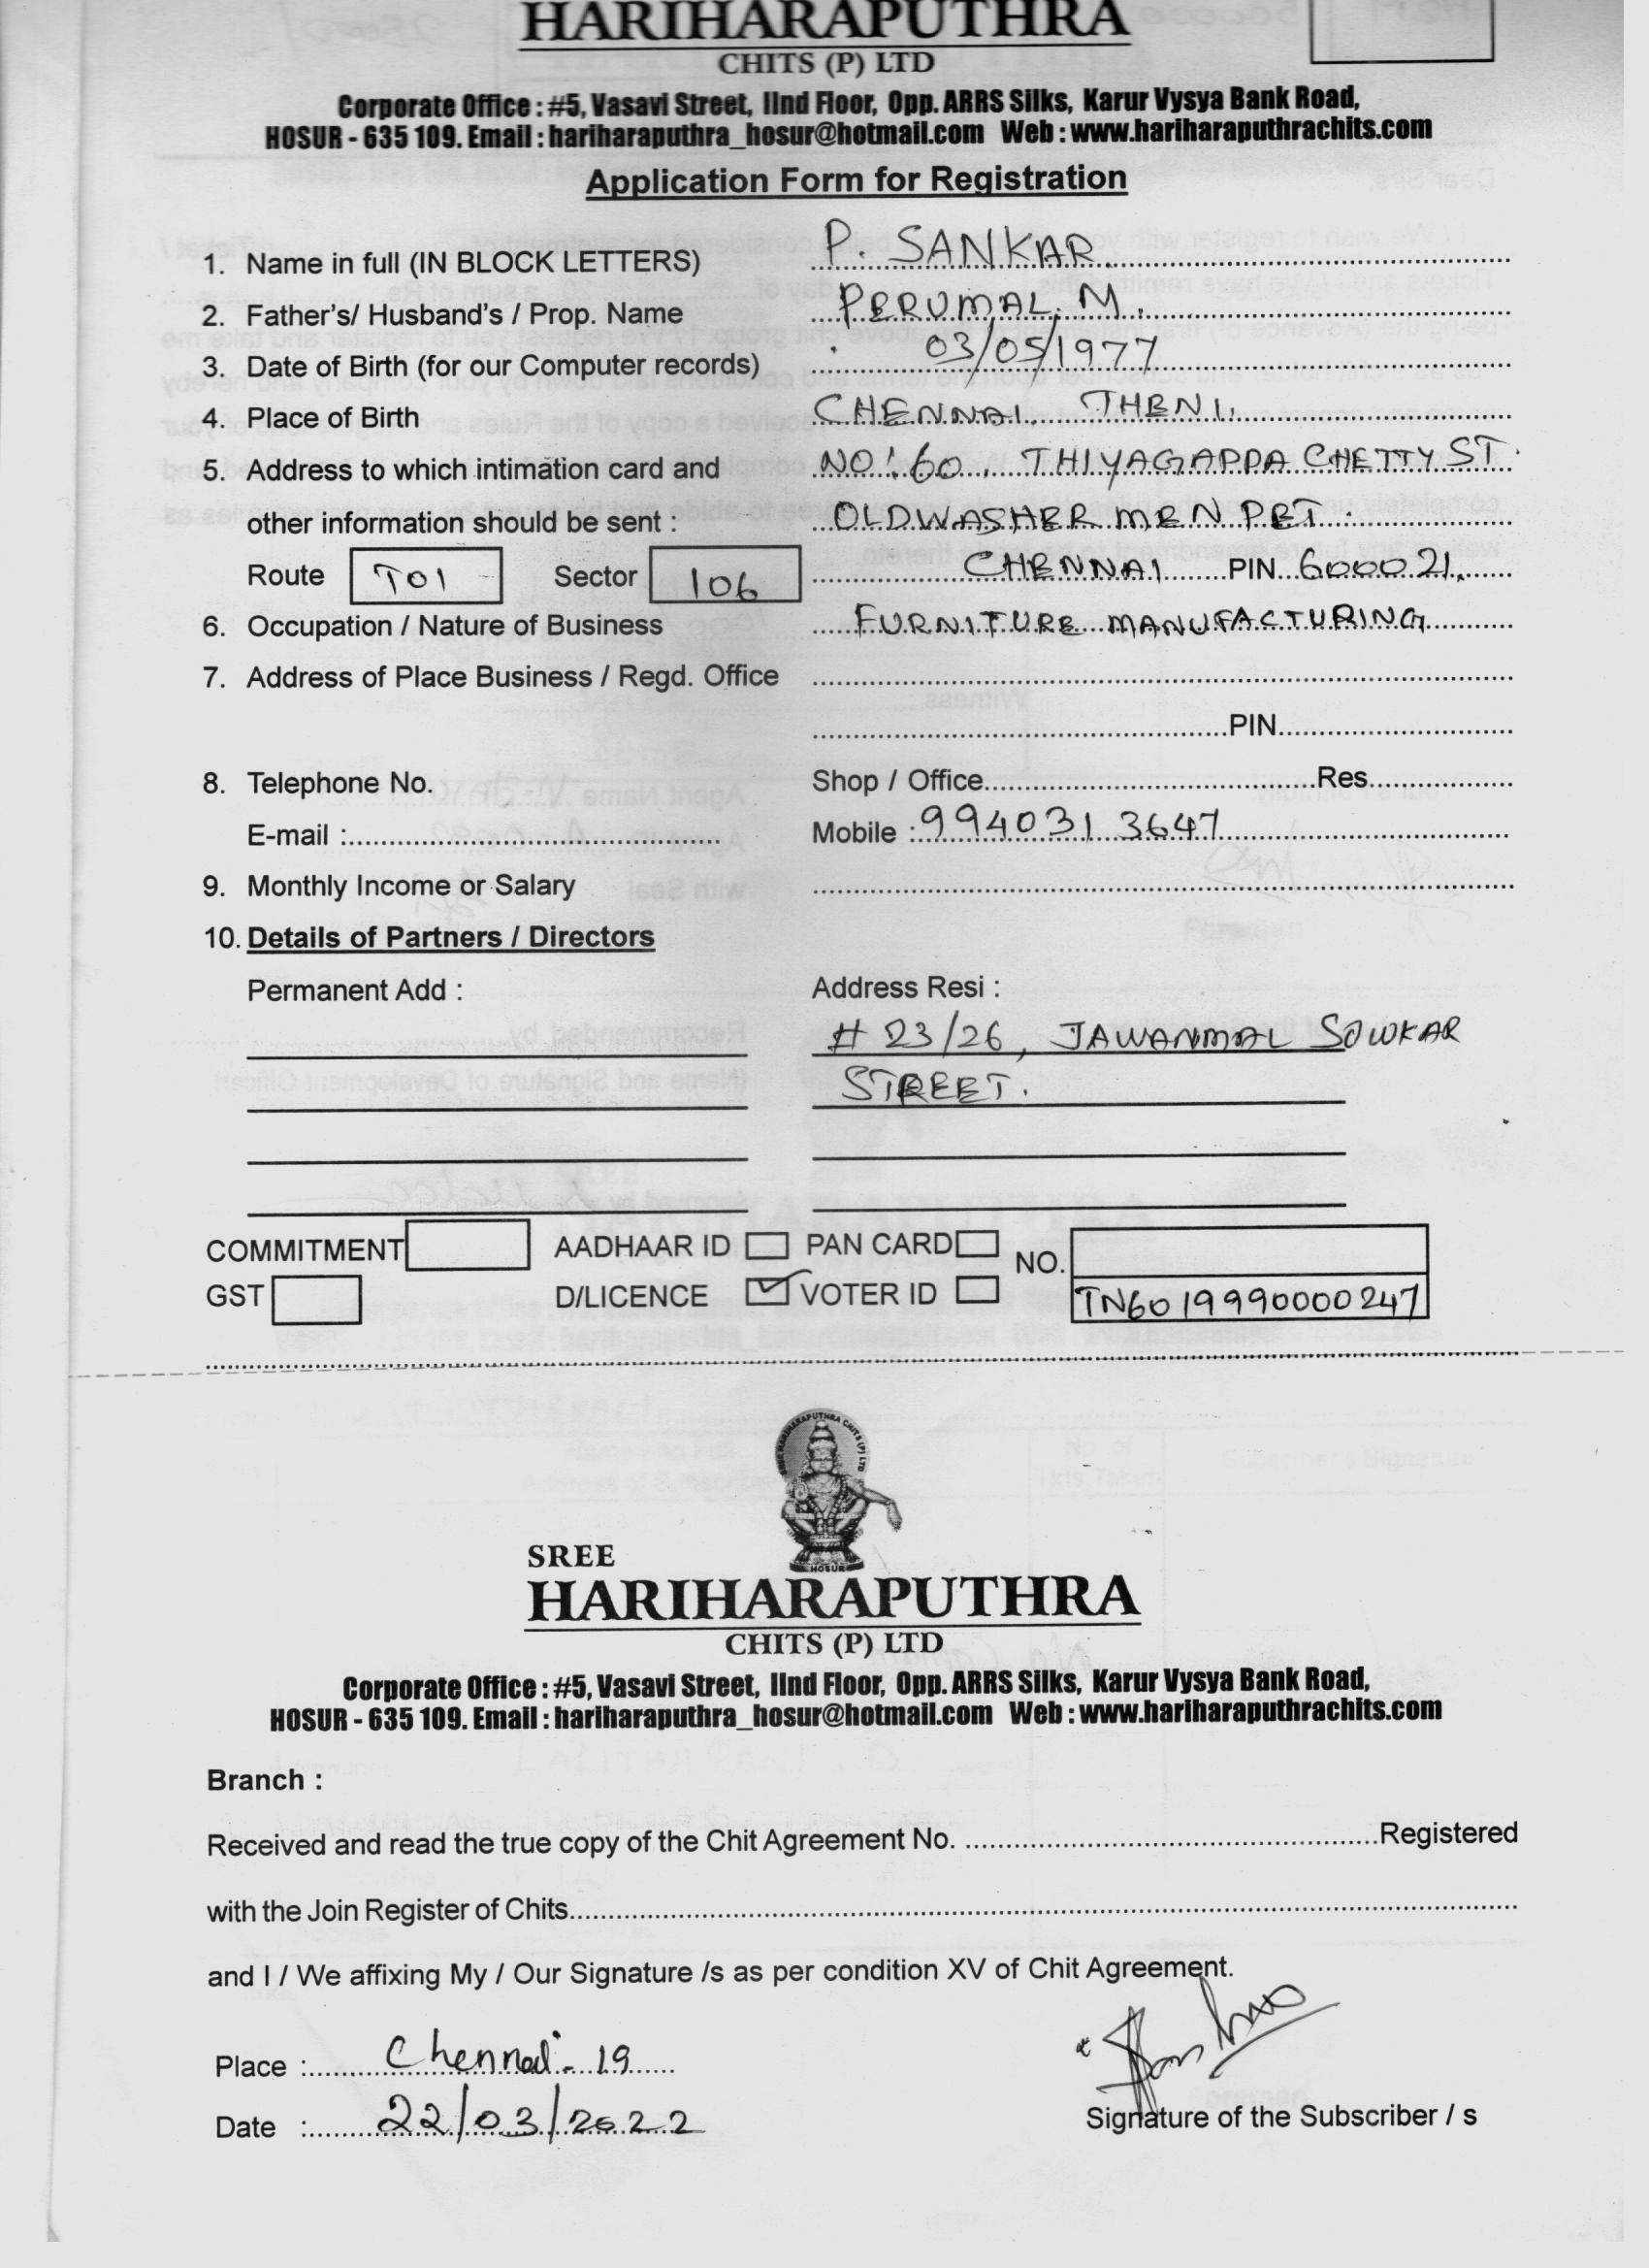 HARIHARAPUTHRA
CHITS (P) LTD
Corporate Office : #5, Vasavi Street, IInd Floor, Opp. ARRS Silks, Karur Vysya Bank Road,
HOSUR - 635 109. Email : hariharaputhra_hosur@hotmail.com Web : www.hariharaputhrachits.com
Application Form for Registration
1. Name in full (IN BLOCK LETTERS) P. SANKAR
2. Father's/ Husband's / Prop. Name PERUMAL, M.
3. Date of Birth (for our Computer records) 03/05/1977
4. Place of Birth CHENNAI. THENI.
5. Address to which intimation card and NO:60, THIYAGAPPA CHETTY ST.
other information should be sent : OLDWASHERMENPET.
Route T01 Sector 106 CHENNAI PIN 600021.
6. Occupation / Nature of Business FURNITURE MANUFACTURING
7. Address of Place Business / Regd. Office
PIN
8. Telephone No. Shop / Office Res
E-mail : Mobile : 9940313647
9. Monthly Income or Salary
10. Details of Partners / Directors
Permanent Add : Address Resi :
# 23/26, JAWANMAL SOWKAR
STREET.
COMMITMENT AADHAAR ID PAN CARD NO.
GST D/LICENCE VOTER ID TN6019990000247
SREE HARIHARAPUTHRA CHITS (P) LTD
HOSUR
SREE
HARIHARAPUTHRA
CHITS (P) LTD
Corporate Office : #5, Vasavi Street, IInd Floor, Opp. ARRS Silks, Karur Vysya Bank Road,
HOSUR - 635 109. Email : hariharaputhra_hosur@hotmail.com Web : www.hariharaputhrachits.com
Branch :
Received and read the true copy of the Chit Agreement No. Registered
with the Join Register of Chits
and I / We affixing My / Our Signature /s as per condition XV of Chit Agreement.
Place : Chennai - 19
Date : 22/03/2022
Signature of the Subscriber / s